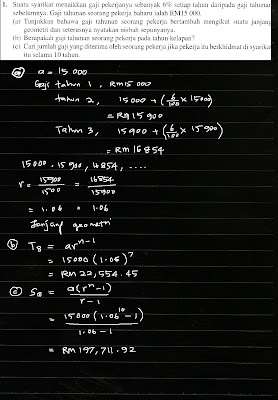 1. Suatu syarikat menaikkan gaji pekerjanya sebanyak 6% setiap tahun daripada gaji tahunan
sebelumnya. Gaji tahunan seorang pekerja baharu ialah RM15 000.
(a) Tunjukkan bahawa gaji tahunan seorang pekerja bertambah mengikut suatu janjang
geometri dan seterusnya nyatakan nisbah sepunyanya.
(b) Berapakah gaji tahunan seorang pekerja pada tahun kelapan?
(c) Cari jumlah gaji yang diterima oleh seorang pekerja jika pekerja itu berkhidmat di syarikat
itu selama 10 tahun.
(a) a = 15 000
Gaji tahun 1, RM15 000
tahun 2, 15000 + (6/100 × 15000)
= RM 15 900
Tahun 3, 15900 + (6/100 × 15900)
= RM 16854
15000, 15900, 16854, ....
r = 15900/1500 = 16854/15900
= 1.06 = 1.06
Janjang geometri
(b) T8 = ar^n-1
= 15000 (1.06)^7
= RM 22,554.45
(c) S10 = a(r^n - 1)/r - 1
= 15000 (1.06^10 - 1)/1.06 - 1
= RM 197,711.92